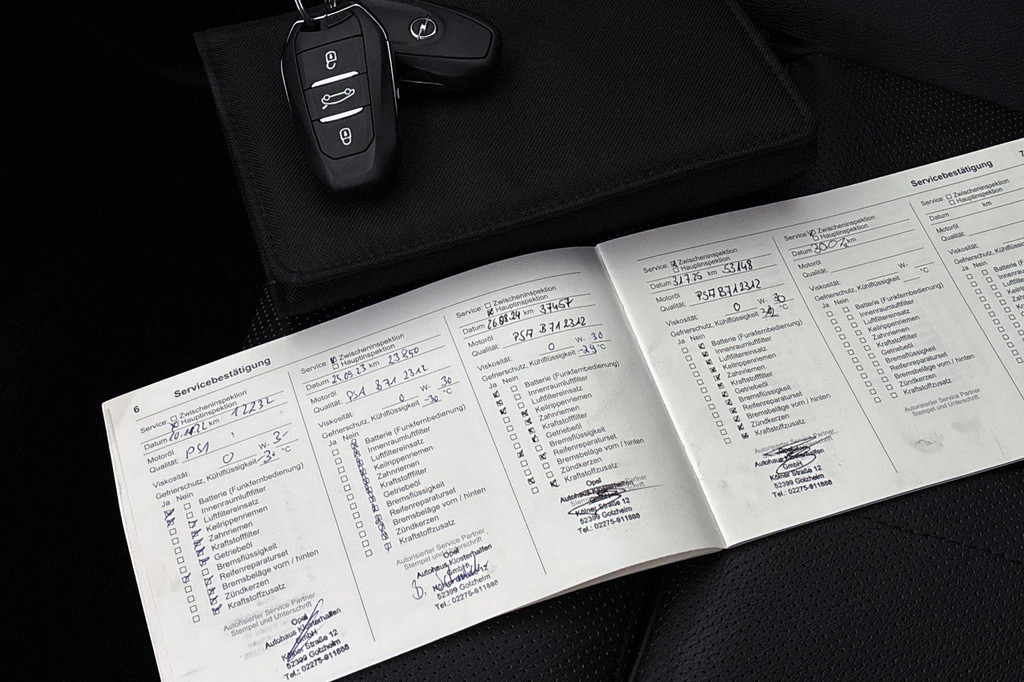 6
Servicebestätigung
Service: Zwischeninspektion
Hauptinspektion
Datum km 12232
Motoröl
Qualität: PSA
Viskosität: 0 W-
Gefrierschutz, Kühlflüssigkeit °C
Ja Nein
Batterie (Funkfernbedienung)
Innenraumluftfilter
Luftfiltereinsatz
Keilrippenriemen
Zahnriemen
Kraftstofffilter
Getriebeöl
Bremsflüssigkeit
Reifenreparaturset
Bremsbeläge vorn / hinten
Zündkerzen
Kraftstoffzusatz
Autorisierter Service Partner
Stempel und Unterschrift
Opel
Autohaus Klosterhalfen
GmbH
Kölner Straße 12
52399 Golzheim
Tel.: 02275-911888
Service: Zwischeninspektion
Hauptinspektion
Datum 25.09.23 km 23850
Motoröl
Qualität: PSA B71 2312
Viskosität: 0 W- 30
Gefrierschutz, Kühlflüssigkeit -30 °C
Ja Nein
Batterie (Funkfernbedienung)
Innenraumluftfilter
Luftfiltereinsatz
Keilrippenriemen
Zahnriemen
Kraftstofffilter
Getriebeöl
Bremsflüssigkeit
Reifenreparaturset
Bremsbeläge vorn / hinten
Zündkerzen
Kraftstoffzusatz
Autorisierter Service Partner
Stempel und Unterschrift
Opel
Autohaus Klosterhalfen
GmbH
52399 Golzheim
Tel.: 02275-911888
Service: Zwischeninspektion
Hauptinspektion
Datum 26.08.24 km 37457
Motoröl
Qualität: PSA B712312
Viskosität: 0 W- 30
Gefrierschutz, Kühlflüssigkeit °C
Ja Nein
Batterie (Funkfernbedienung)
Innenraumluftfilter
Luftfiltereinsatz
Keilrippenriemen
Zahnriemen
Kraftstofffilter
Getriebeöl
Bremsflüssigkeit
Reifenreparaturset
Bremsbeläge vorn / hinten
Zündkerzen
Kraftstoffzusatz
Opel
Autohaus
Kölner Straße 12
52399 Golzheim
Tel.: 02275-911888
Servicebestätigung
7
Service: Zwischeninspektion
Hauptinspektion
Datum 31.7.25 km 53148
Motoröl
Qualität: PSA B712312
Viskosität: 0 W- 30
Gefrierschutz, Kühlflüssigkeit °C
Ja Nein
Batterie (Funkfernbedienung)
Innenraumluftfilter
Luftfiltereinsatz
Keilrippenriemen
Zahnriemen
Kraftstofffilter
Getriebeöl
Bremsflüssigkeit
Reifenreparaturset
Bremsbeläge vorn / hinten
Zündkerzen
Kraftstoffzusatz
Autorisierter Service Partner
Autohaus
GmbH
Kölner Straße 12
52399 Golzheim
Tel.: 02275-911888
Service: Zwischeninspektion
Hauptinspektion
Datum km
Motoröl
Qualität:
Viskosität: W-
Gefrierschutz, Kühlflüssigkeit °C
Ja Nein
Batterie (Funkfernbedienung)
Innenraumluftfilter
Luftfiltereinsatz
Keilrippenriemen
Zahnriemen
Kraftstofffilter
Getriebeöl
Bremsflüssigkeit
Reifenreparaturset
Bremsbeläge vorn / hinten
Zündkerzen
Kraftstoffzusatz
Autorisierter Service Partner
Stempel und Unterschrift
Service: Zwischeninspektion
Hauptinspektion
Datum km
Motoröl
Qualität:
Viskosität:
Gefrierschutz, Kühlflüssigkeit
Ja Nein